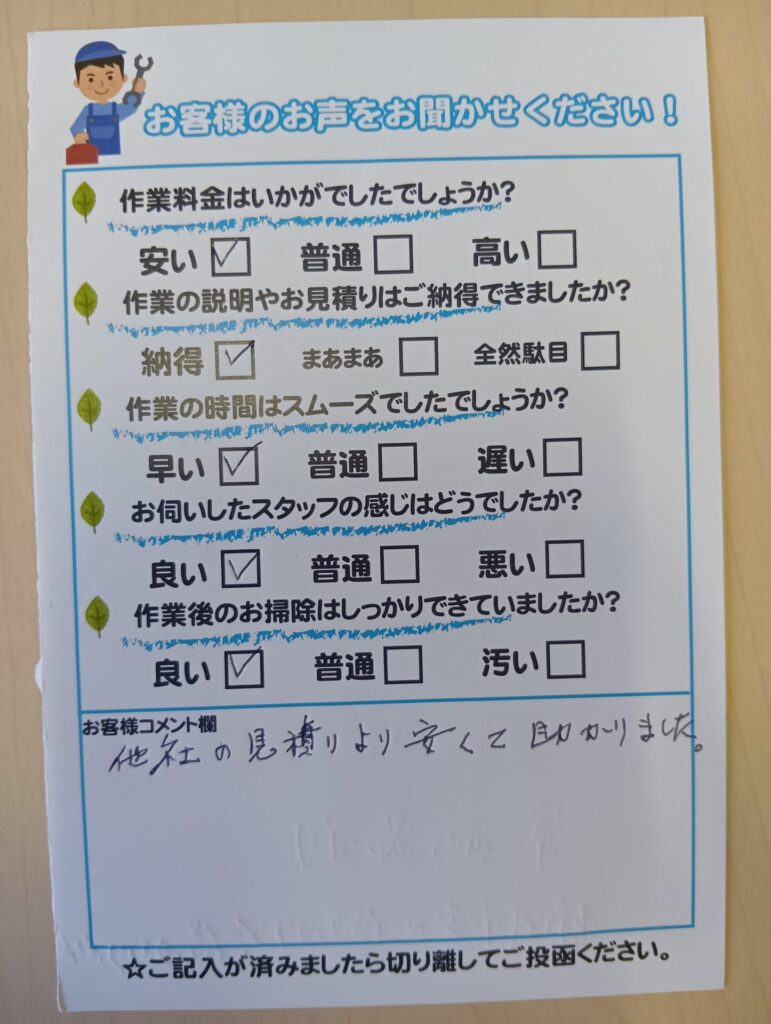 お客様のお声をお聞かせください！
作業料金はいかがでしたでしょうか？
安い 普通 高い
作業の説明やお見積りはご納得できましたか？
納得 まあまあ 全然駄目
作業の時間はスムーズでしたでしょうか？
早い 普通 遅い
お伺いしたスタッフの感じはどうでしたか？
良い 普通 悪い
作業後のお掃除はしっかりできていましたか？
良い 普通 汚い
お客様コメント欄
他社の見積りより安くて助かりました。
☆ご記入が済みましたら切り離してご投函ください。